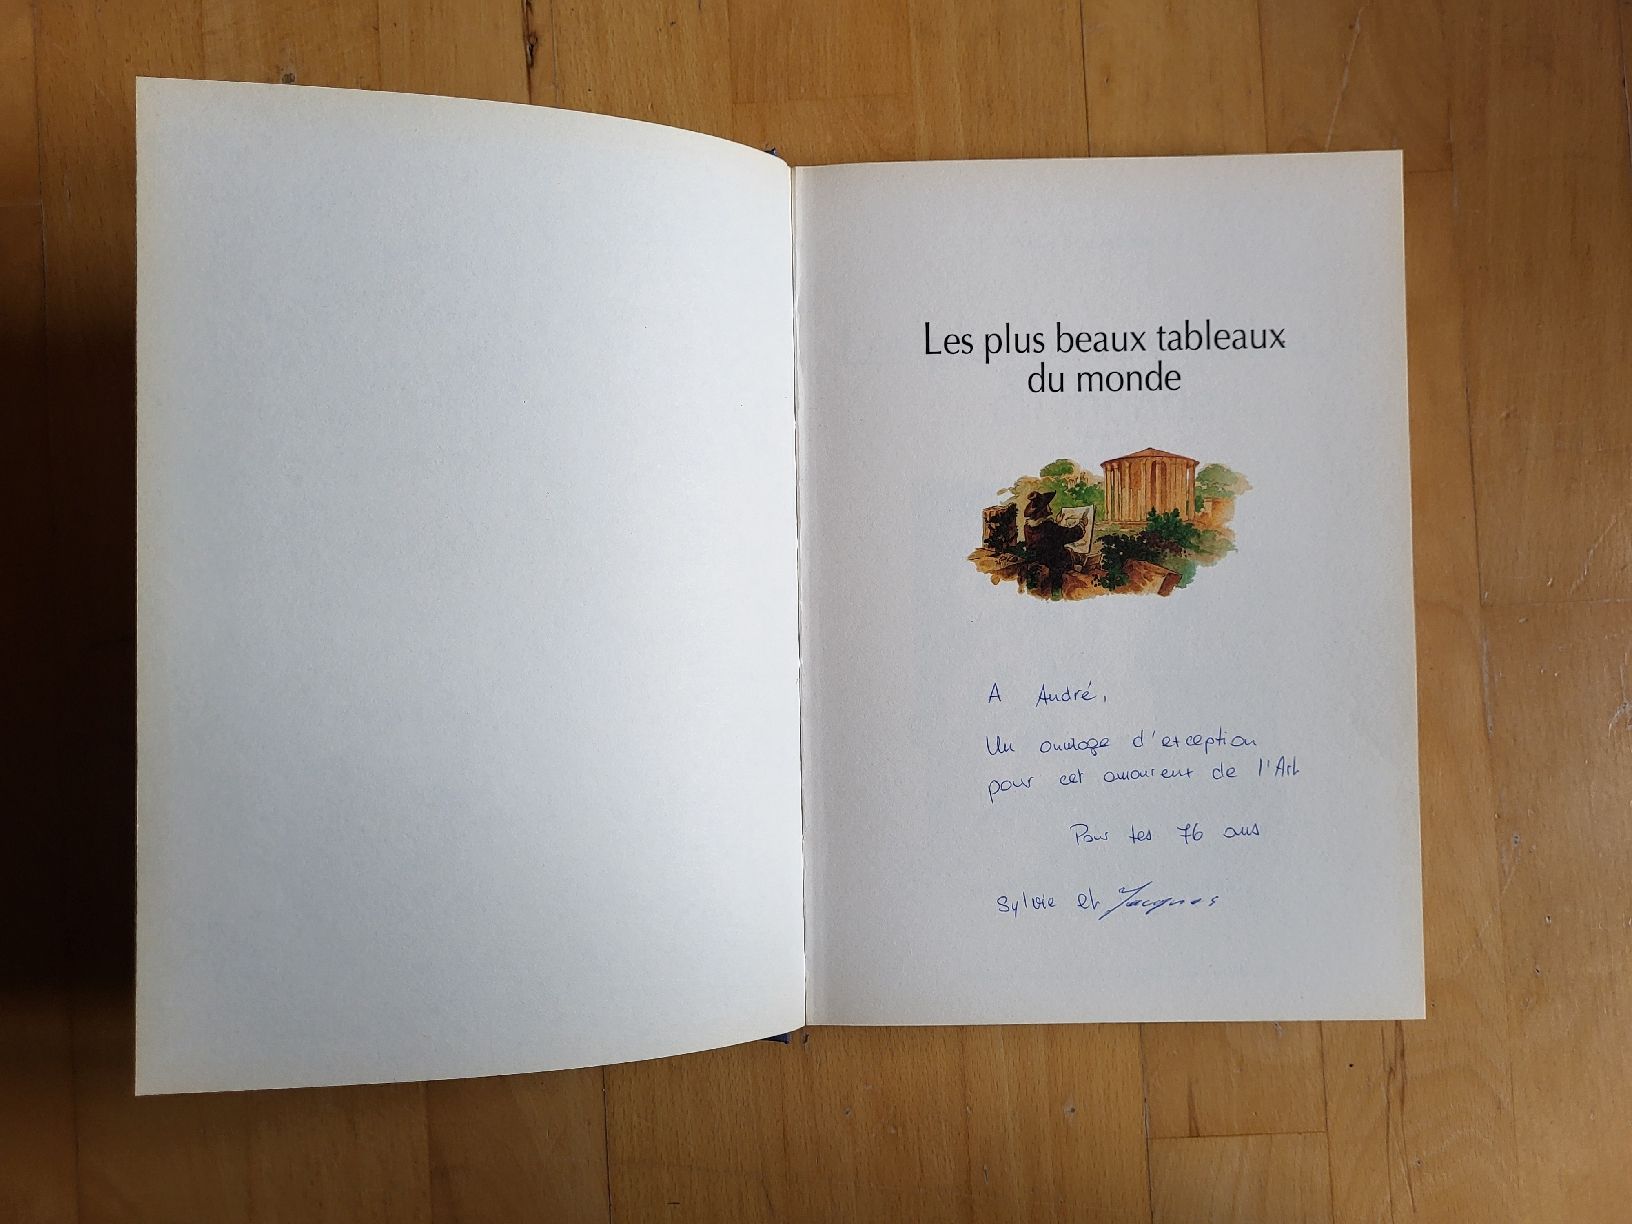 Les plus beaux tableaux
du monde
A André,
Un ouvrage d'exception
pour cet amoureux de l'Art
Pour tes 76 ans
Sylvie et Jacques